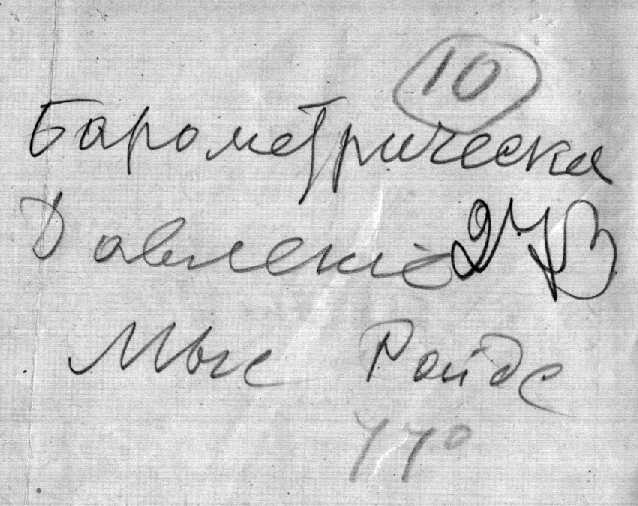 10
Барометрическая
Давление 273
Мыс Ройдс
770